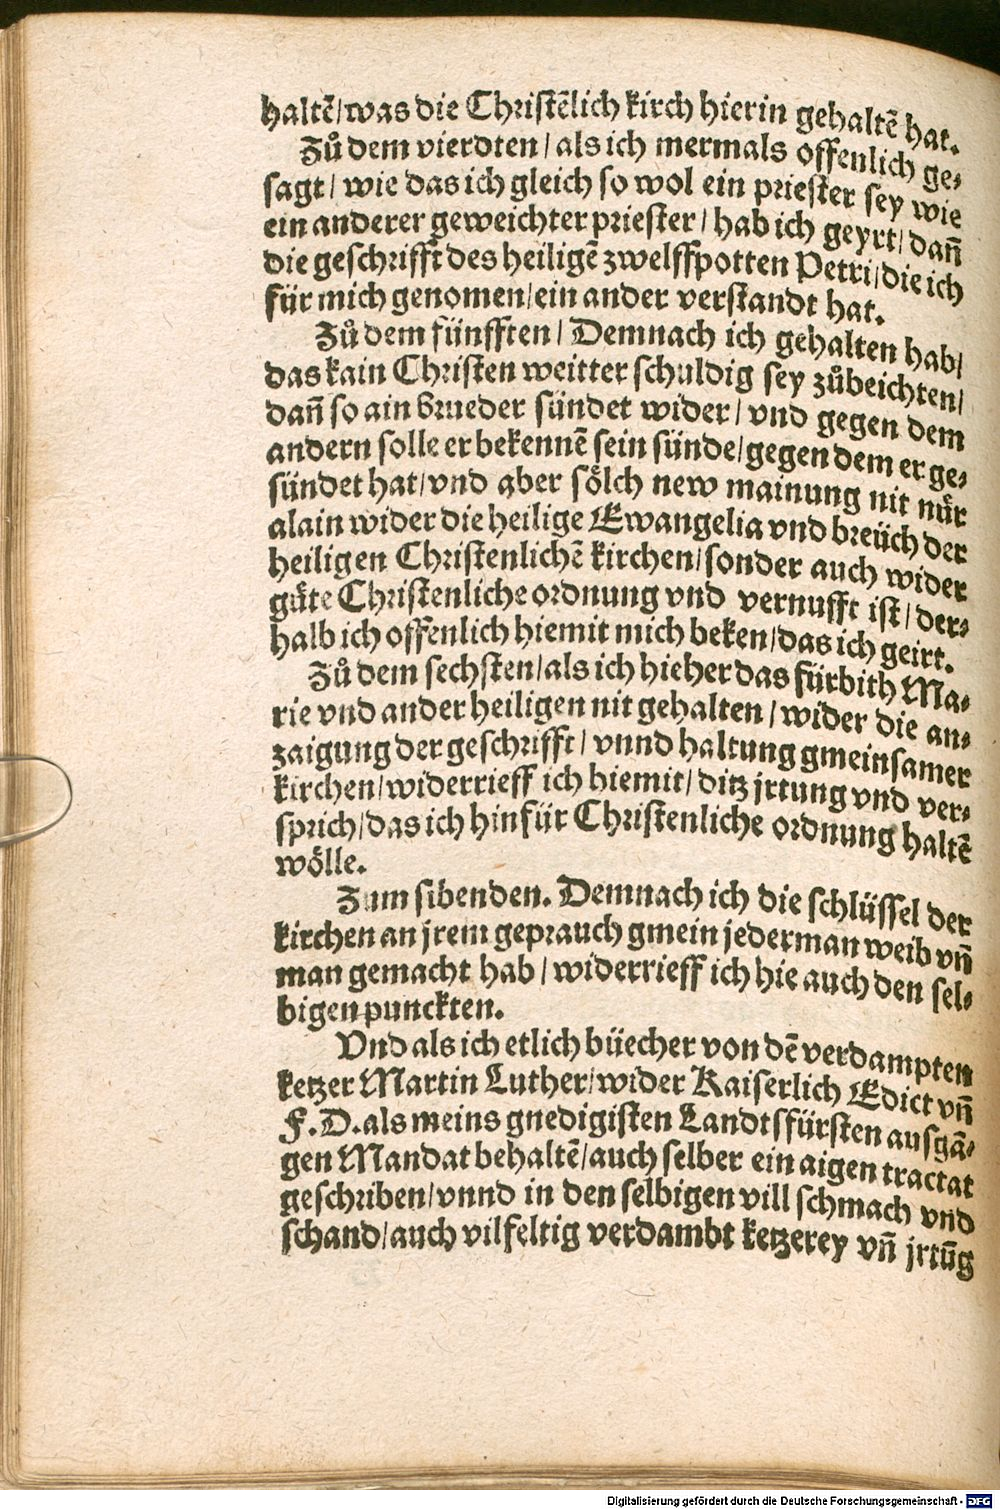 haltẽ/was die Christẽlich kirch hierin gehaltẽ hat.
Zů dem vierdten/als ich mermals offenlich ge⸗
sagt/wie das ich gleich so wol ein priester sey wie
ein anderer geweichter priester/hab ich geyrt/dañ
die geschrifft des heiligẽ zwelffpotten Petri/die ich
für mich genomen/ein ander verstandt hat.
Zů dem fünfften/Demnach ich gehalten hab/
das kain Christen weitter schuldig sey zůbeichten/
dañ so ain brueder sündet wider/vnd gegen dem
andern solle er bekennẽ sein sünde/gegen dem er ge⸗
sündet hat/vnd aber sölch new mainung nit nůr
alain wider die heilige Ewangelia vnd breüch der
heiligen Christenlichẽ kirchen/sonder auch wider
gůte Christenliche ordnung vnd vernufft ist/der⸗
halb ich offenlich hiemit mich beken/das ich geirt.
Zů dem sechsten/als ich hieher das fürbith Ma⸗
rie vnd ander heiligen nit gehalten/wider die an⸗
zaigung der geschrifft/vnnd haltung gmeinsamer
kirchen/widerrieff ich hiemit/ditz jrtung vnd ver⸗
sprich/das ich hinfür Christenliche ordnung haltẽ
wölle.
Zum sibenden. Demnach ich die schlüssel der
kirchen an jrem geprauch gmein jederman weib vñ
man gemacht hab/widerrieff ich hie auch den sel⸗
bigen punckten.
Vnd als ich etlich büecher von dẽ verdampten
ketzer Martin Luther/wider Kaiserlich Edict vñ
F.D.als meins gnedigisten Landtsfürsten ausgã⸗
gen Mandat behaltẽ/auch selber ein aigen tractat
geschriben/vnnd in den selbigen vill schmach vnd
schand/auch vilfeltig verdambt ketzerey vñ jrtũg
Digitalisierung gefördert durch die Deutsche Forschungsgemeinschaft - DFG